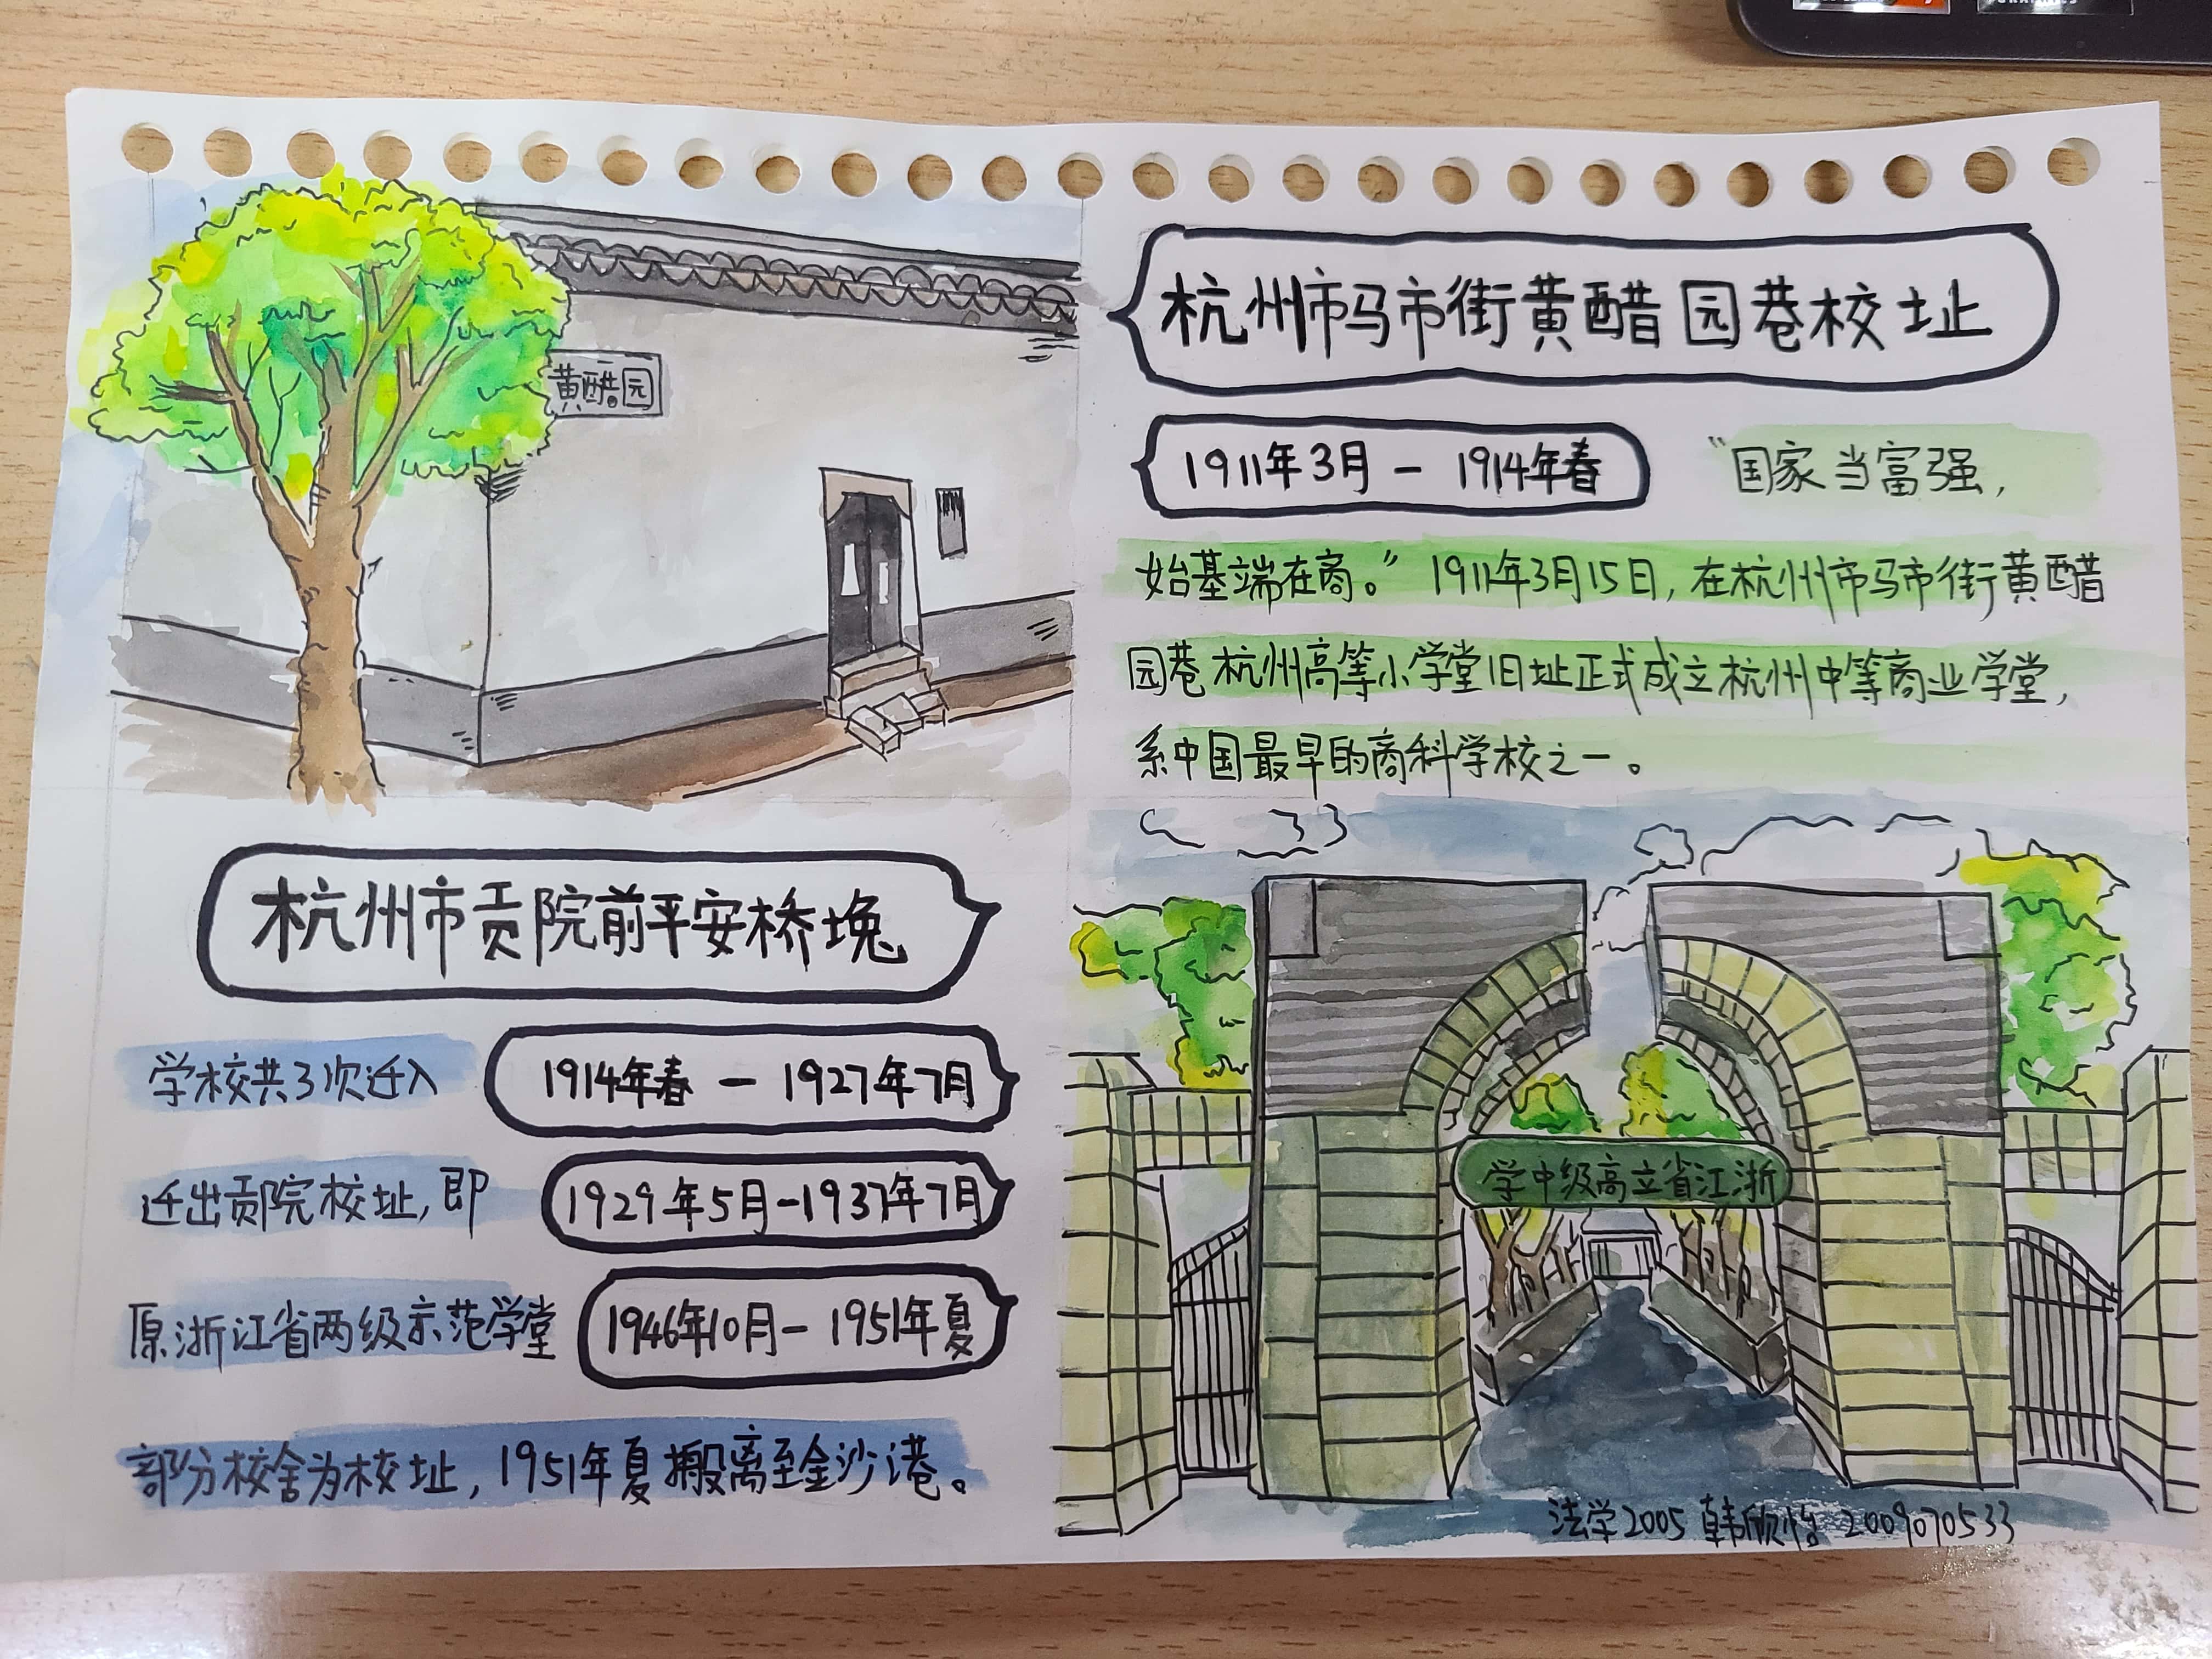 黄醋园
杭州市马市街黄醋园巷校址
1911年3月 - 1914年春
“国家当富强，
始基端在商。” 1911年3月15日，在杭州市马市街黄醋
园巷杭州高等小学堂旧址正式成立杭州中等商业学堂，
系中国最早的商科学校之一。
杭州市贡院前平安桥堍
学校共3次迁入
1914年春 — 1927年7月
迁出贡院校址，即
1929年5月-1937年7月
原浙江省两级示范学堂
1946年10月 - 1951年夏
部分校舍为校址，1951年夏搬离至金沙港。
学中级高立省江浙
法学2005 韩欣怡 2009070533